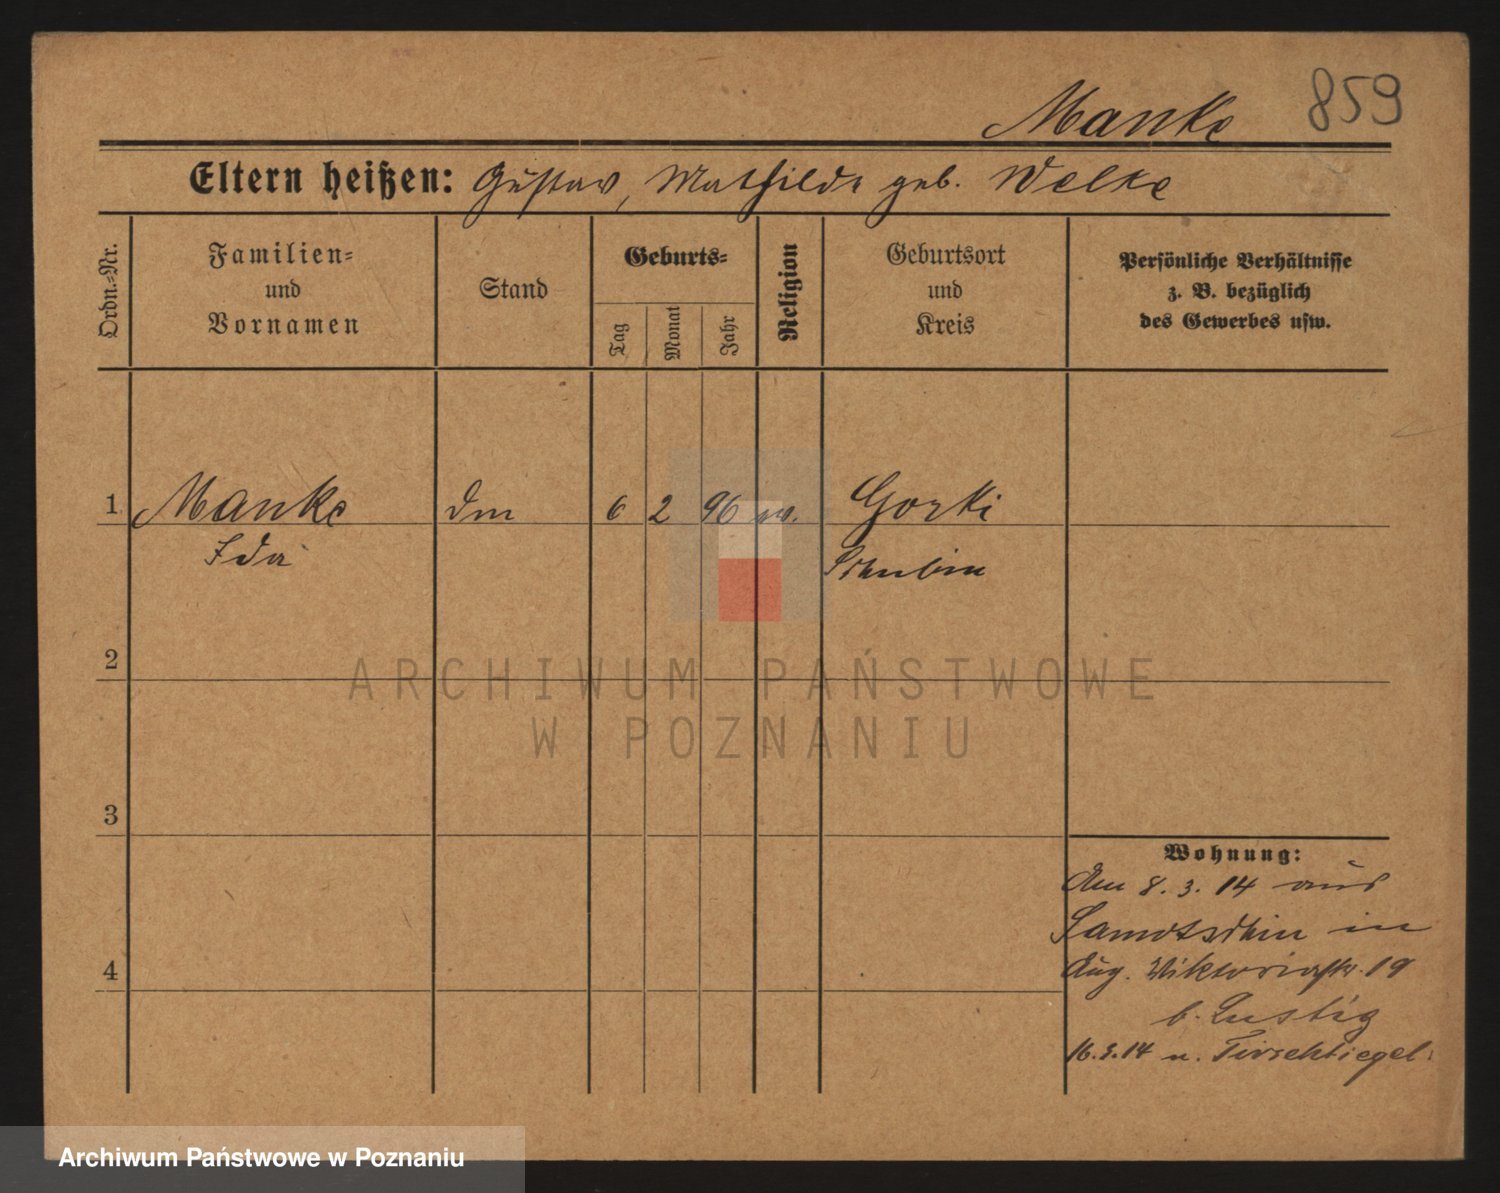 Manke 859
Eltern heißen: Gustav, Mathilde geb. Welke
Ordn.-Nr.
Familien-
und
Vornamen
Stand
Geburts-
Tag
Monat
Jahr
Religion
Geburtsort
und
Kreis
Persönliche Verhältnisse
z. B. bezüglich
des Gewerbes usw.
1 Manke 6 2 96 Gorki
Ida Schubin
2
3
4
Wohnung:
Am 8. 3. 14 aus
Samotschin in
Aug. Viktoriastr. 19
b. Lustig
16.3.14 n. Tirschtiegel
ARCHIWUM PAŃSTWOWE
W POZNANIU
Archiwum Państwowe w Poznaniu